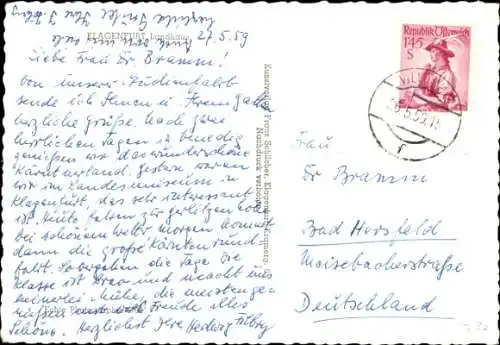 KLAGENFURT, Landhaus
27.5.59
Liebe Frau Dr. Bramm!
Von unserer Südlandfahrt
sende ich Ihnen u. Ihrem Gatten
herzliche Grüße. Nach zwei
herrlichen Tagen in Venedig
genießen wir das wunderschöne
Kärntnerland. Gestern waren
wir im Landesmuseum in
Klagenfurt, das sehr interessant
ist. Heute fahren zur Gerlitzen
bei schönem Wetter morgen kommt
dann die große Kärnten rund
fahrt. So vergehen die Tage die
Klasse ist brav und macht uns
keinerlei Mühe, die meisten
Freude alles
Schöne. Herzlichst Ihre Hedwig
Kunstverlag Franz Schilcher, Klagenfurt
Nachdruck verboten
Republik Österreich
1·45
S
Frau
Dr Bramm
Bad Hersfeld
Meisebacherstraße
Deutschland